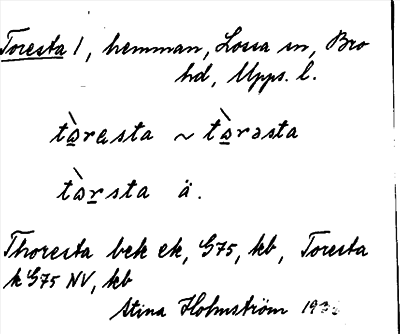 Toresta 1, hemman, Lossa sn, Bro
hd, Upps. l.
tòresta ~ tòrəsta
tòrsta ä.
Thoresta bek ek, G75, kb, Toresta
k G75 NV, kb
Stina Holmström